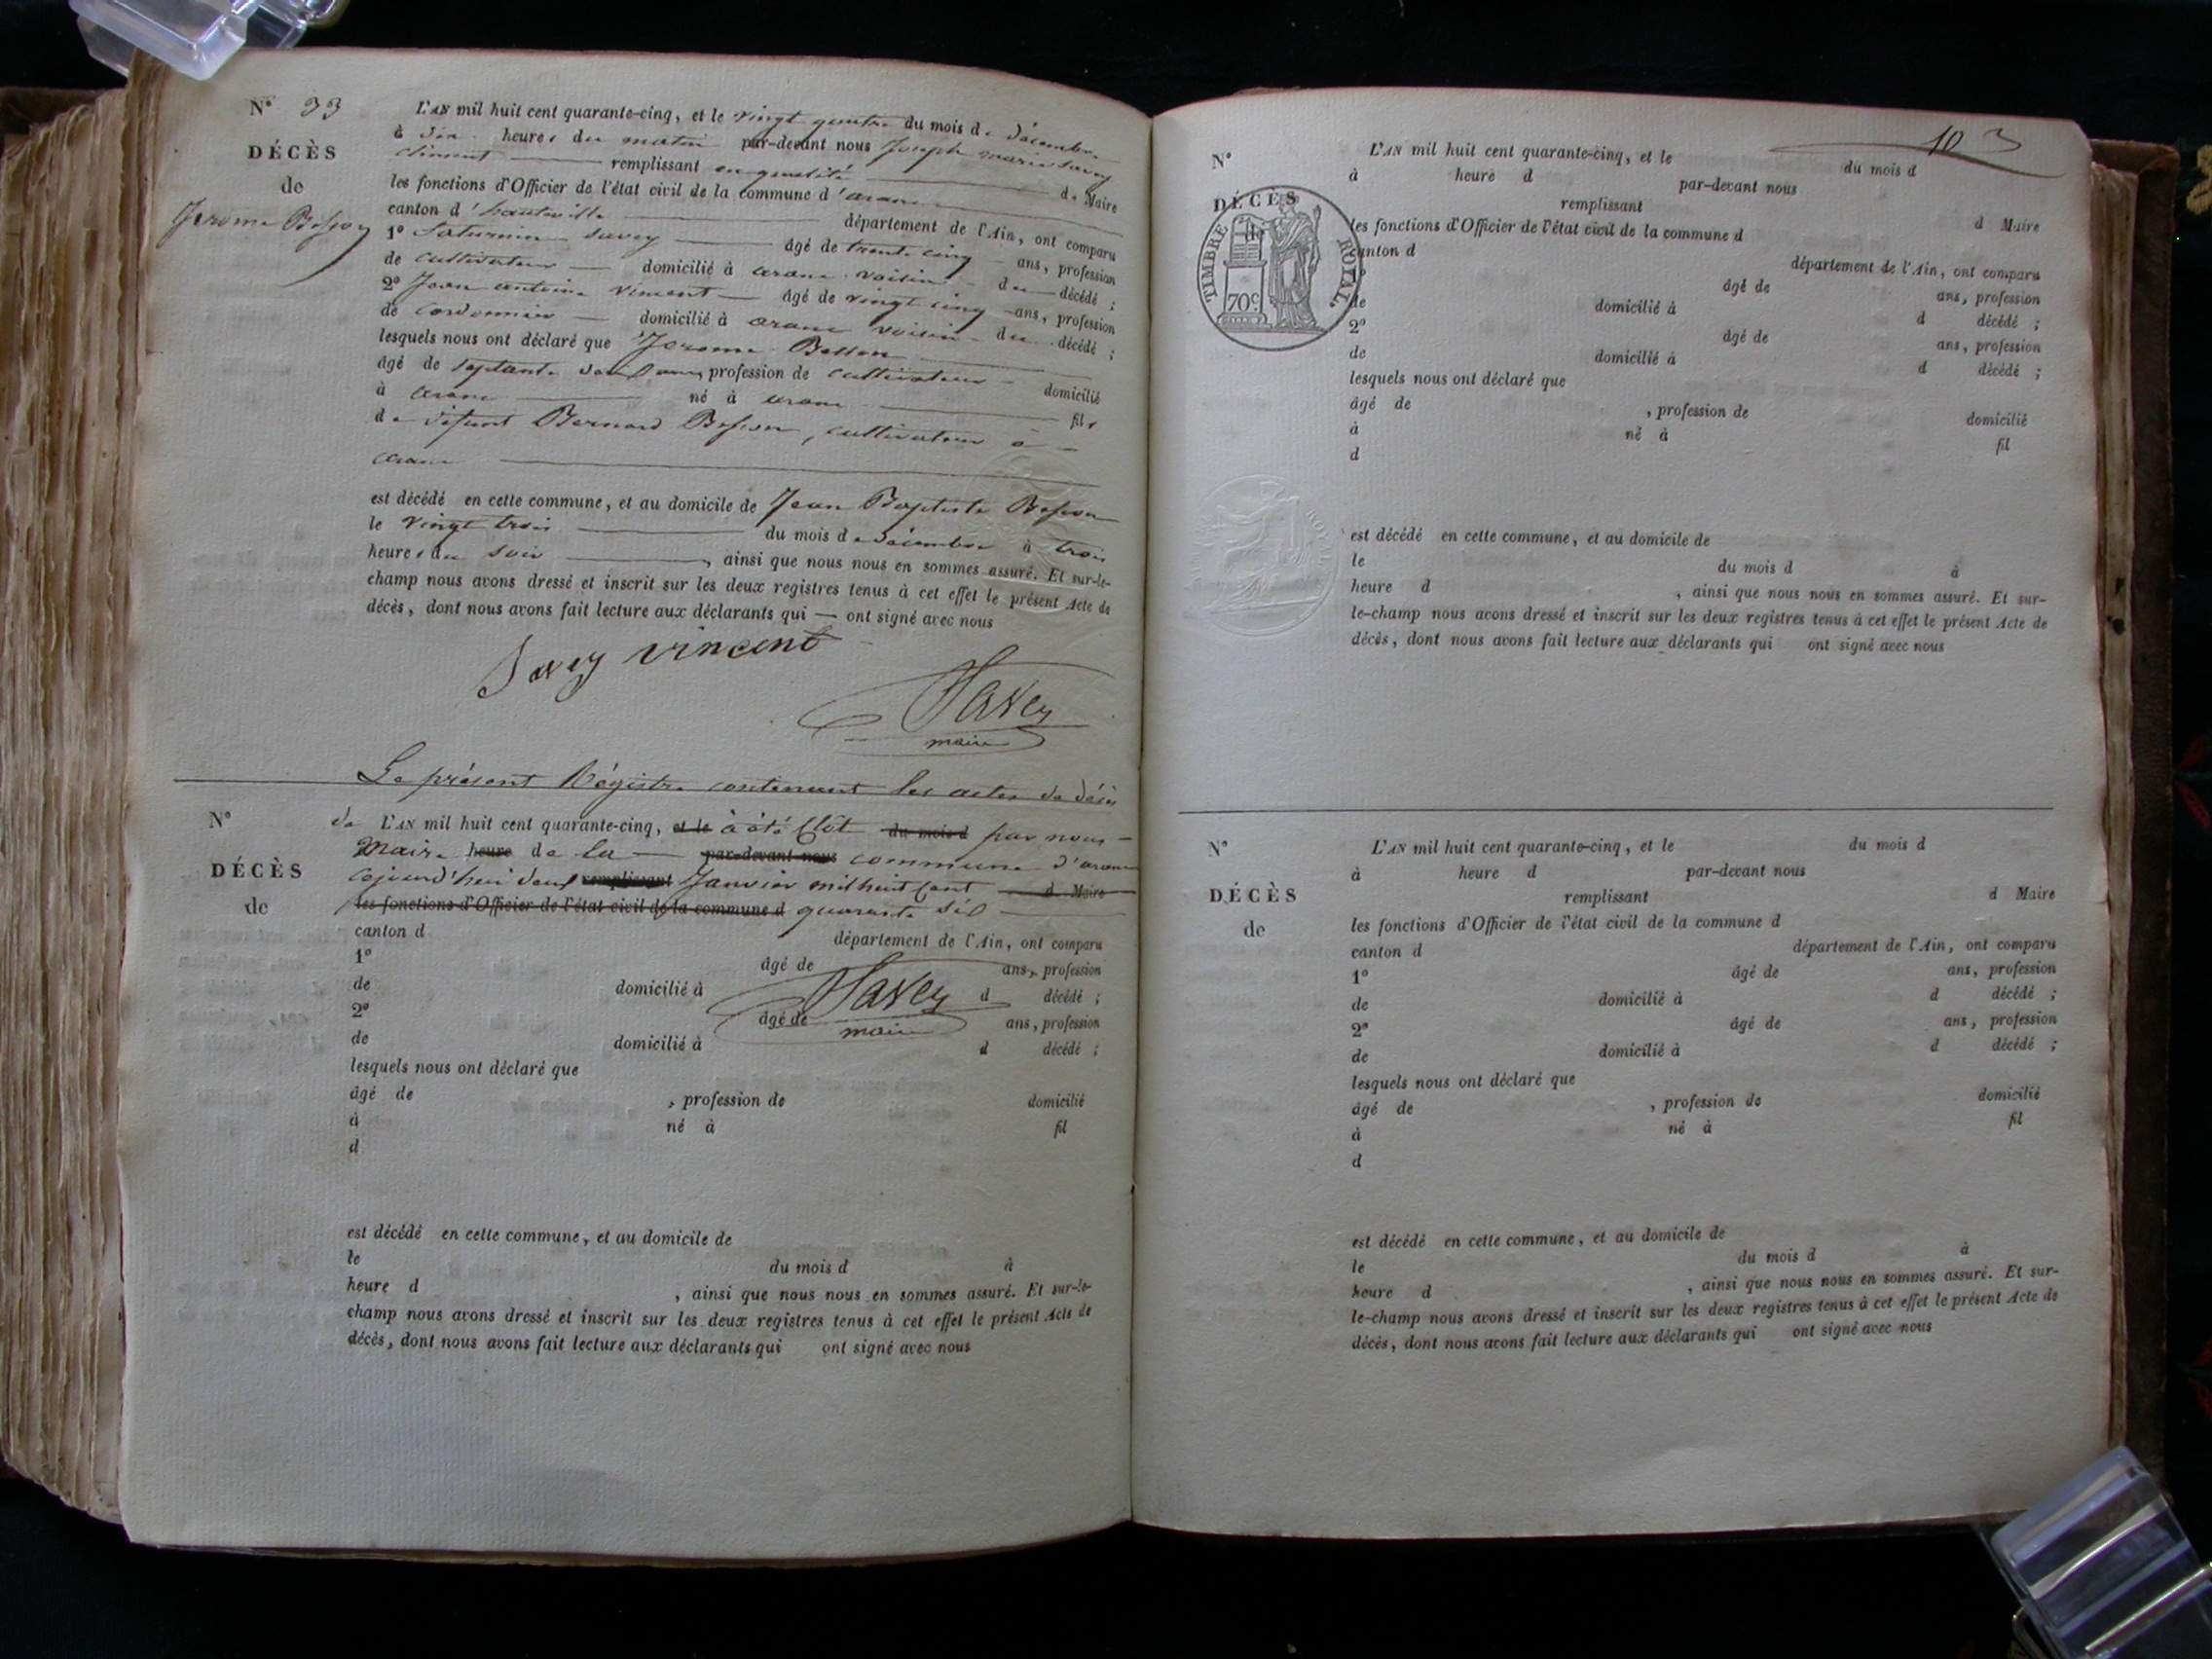 N° 33
DÉCÈS
de
Jerome Besson
L'AN mil huit cent quarante-cinq, et le vingt quatre du mois de décembre
à dix heures du matin par-devant nous Joseph marie Savey
clément remplissant en qualité de Maire
les fonctions d'Officier de l'état civil de la commune d'aranc
canton d'hauteville département de l'Ain, ont comparu
1° Saturnin Savey âgé de trente cinq ans, profession
de cultivateur domicilié à aranc voisin du décédé ;
2° Jean antoine vincent âgé de vingt cinq ans, profession
de cordonnier domicilié à aranc voisin du décédé ;
lesquels nous ont déclaré que Jerome Besson
âgé de septante deux ans, profession de cultivateur domicilié
à aranc né à aranc fils
de défunt Bernard Besson, cultivateur à
aranc
est décédé en cette commune, et au domicile de Jean Baptiste Besson
le vingt trois du mois de décembre à trois
heures du soir , ainsi que nous nous en sommes assuré. Et sur-le-
champ nous avons dressé et inscrit sur les deux registres tenus à cet effet le présent Acte de
décès, dont nous avons fait lecture aux déclarants qui — ont signé avec nous
Savey vincent
Savey
maire
Le présent Régistre contenant les actes de décès
N°
DÉCÈS
de
de L'AN mil huit cent quarante-cinq, et le à été Clôt du mois d par nous
Maire heure de la par-devant nous commune d'aranc
cejourd'hui deux remplissant Janvier mil huit cent d Maire
les fonctions d'Officier de l'état civil de la commune d quarante six
canton d département de l'Ain, ont comparu
1° âgé de ans, profession
de domicilié à Savey d décédé ;
2° âgé de maire ans, profession
de domicilié à d décédé ;
lesquels nous ont déclaré que
âgé de , profession de domicilié
à né à fil
d
est décédé en cette commune, et au domicile de
le du mois d à
heure d , ainsi que nous nous en sommes assuré. Et sur-le-
champ nous avons dressé et inscrit sur les deux registres tenus à cet effet le présent Acte de
décès, dont nous avons fait lecture aux déclarants qui ont signé avec nous
103
N°
DÉCÈS
TIMBRE ROYAL
70c
L'AN mil huit cent quarante-cinq, et le du mois d
à heure d par-devant nous
remplissant d Maire
les fonctions d'Officier de l'état civil de la commune d
canton d département de l'Ain, ont comparu
âgé de ans, profession
de domicilié à d décédé ;
2° âgé de ans, profession
de domicilié à d décédé ;
lesquels nous ont déclaré que
âgé de , profession de domicilié
à né à fil
d
est décédé en cette commune, et au domicile de
le du mois d à
heure d , ainsi que nous nous en sommes assuré. Et sur-
le-champ nous avons dressé et inscrit sur les deux registres tenus à cet effet le présent Acte de
décès, dont nous avons fait lecture aux déclarants qui ont signé avec nous
N°
DÉCÈS
de
L'AN mil huit cent quarante-cinq, et le du mois d
à heure d par-devant nous
remplissant d Maire
les fonctions d'Officier de l'état civil de la commune d
canton d département de l'Ain, ont comparu
1° âgé de ans, profession
de domicilié à d décédé ;
2° âgé de ans, profession
de domicilié à d décédé ;
lesquels nous ont déclaré que
âgé de , profession de domicilié
à né à fil
d
est décédé en cette commune, et au domicile de
le du mois d à
heure d , ainsi que nous nous en sommes assuré. Et sur-
le-champ nous avons dressé et inscrit sur les deux registres tenus à cet effet le présent Acte de
décès, dont nous avons fait lecture aux déclarants qui ont signé avec nous